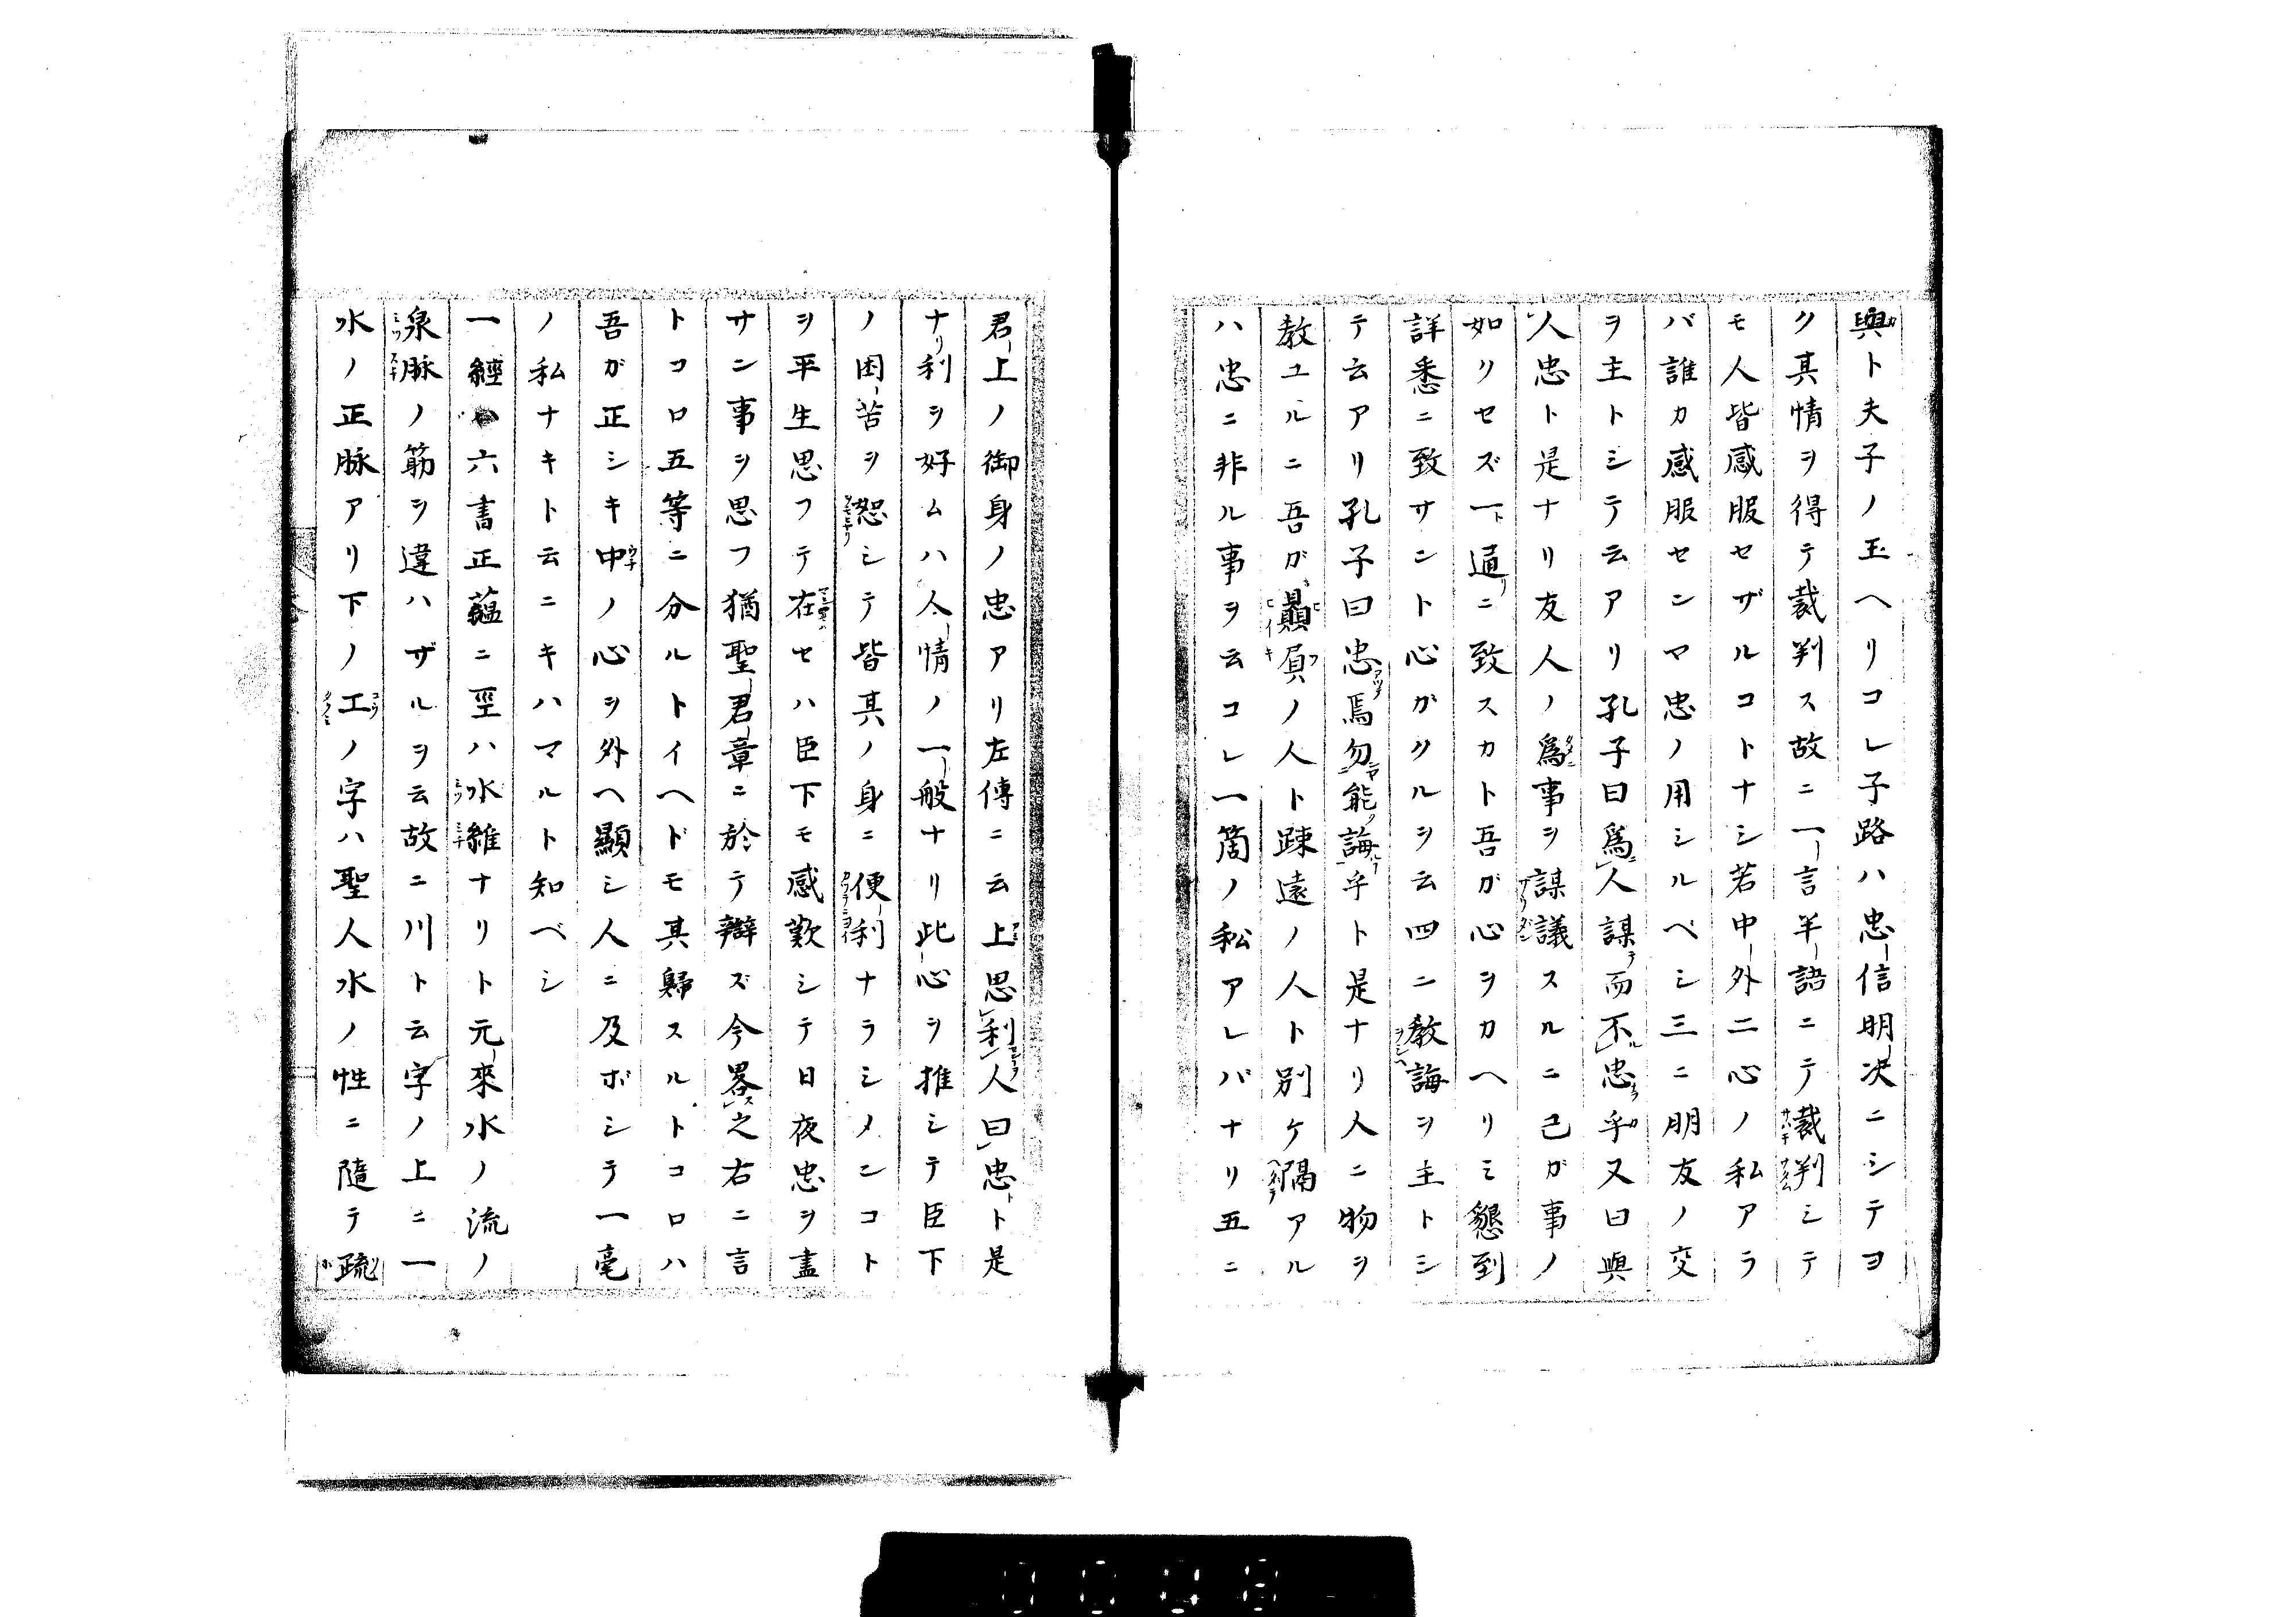 與ト夫子ノ玉ヘリコレ子路ハ忠信明决ニシテヨ
ク其情ヲ得テ裁判ス故ニ一言半語ニテ裁判シテ
モ人皆感服セザルコトナシ若中外二心ノ私アラ
バ誰カ感服センマ忠ノ用シルベシ三ニ朋友ノ交
ヲ主トシテ云アリ孔子曰爲人謀而不忠乎又曰與
人忠ト是ナリ友人ノ爲事ヲ謀議スルニ己ガ事ノ
如リセズ一通ニ致スカト吾ガ心ヲカヘリミ懇到
詳悉ニ致サント心ガクルヲ云四ニ教誨ヲ主トシ
テ云アリ孔子曰忠焉勿能誨乎ト是ナリ人ニ物ヲ
教ユルニ吾ガ贔屓ノ人ト踈遠ノ人ト別ケ隔アル
ハ忠ニ非ル事ヲ云コレ一箇ノ私アレバナリ五ニ
君上ノ御身ノ忠アリ左傳ニ云上思利人曰忠ト是
ナリ利ヲ好ムハ人情ノ一般ナリ此心ヲ推シテ臣下
ノ困苦ヲ恕シテ皆其ノ身ニ便利ナラシメンコト
ヲ平生思フテ在セハ臣下モ感歎シテ日夜忠ヲ盡
サン事ヲ思フ猶聖君章ニ於テ辯ズ今畧之右ニ言
トコロ五等ニ分ルトイヘドモ其歸スルトコロハ
吾ガ正シキ中ノ心ヲ外ヘ顯シ人ニ及ボシテ一毫
ノ私ナキト云ニキハマルト知ベシ
一經ハ六書正蘊ニ巠ハ水維ナリト元來水ノ流ノ
泉脉ノ筋ヲ違ハザルヲ云故ニ川ト云字ノ上ニ一
水ノ正脉アリ下ノ工ノ字ハ聖人水ノ性ニ隨テ疏